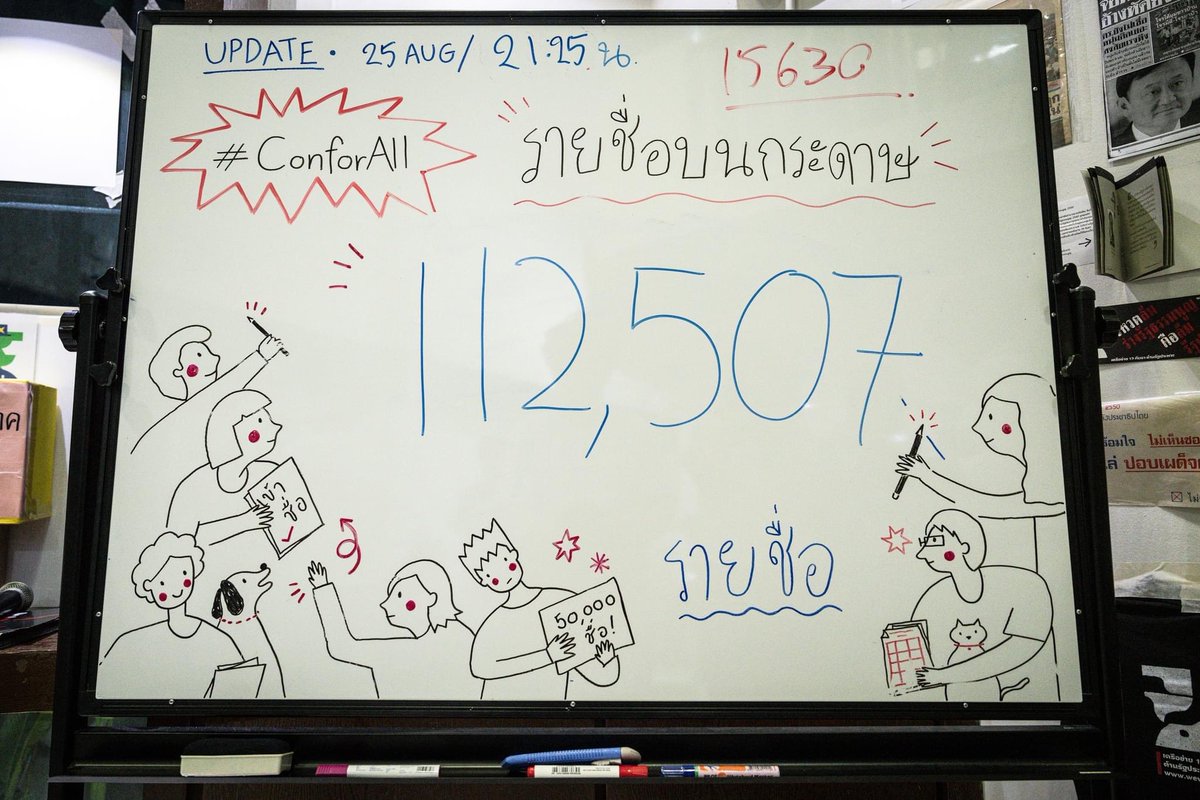 UPDATE • 25 AUG/ 21:25 น.
15630
#ConforAll
รายชื่อบนกระดาษ
112,507
รายชื่อ
เข้าชื่อ
50,000
ชื่อ!
2550
ไม่เห็นชอ
ปอบเผด็จ
ค